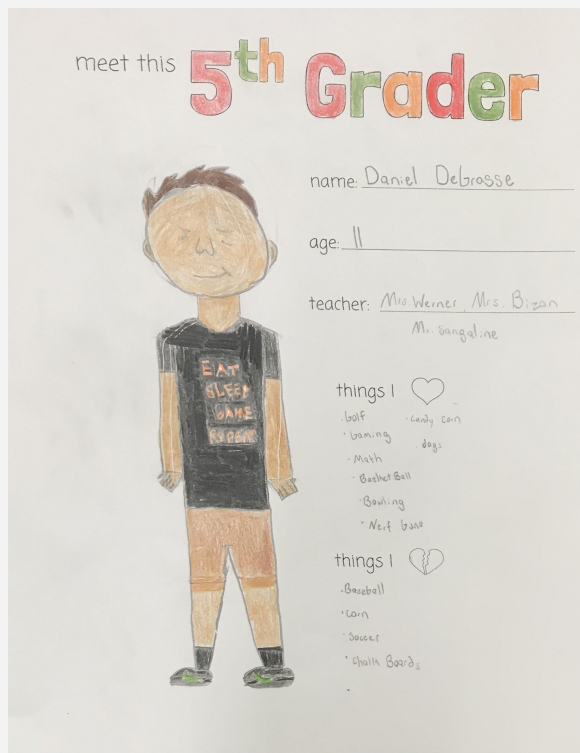 meet this 5th Grader
name: Daniel DeGrasse
age: 11
teacher: Mrs. Werner, Mrs. Bizan
Mr. Sangaline
EAT
SLEEP
GAME
REPEAT
things I
· Golf
· Candy Corn
· Gaming
· dogs
· Math
· BasketBall
· Bowling
· Nerf Guns
things I
· Baseball
· Corn
· Soccer
· Chalk Boards
·